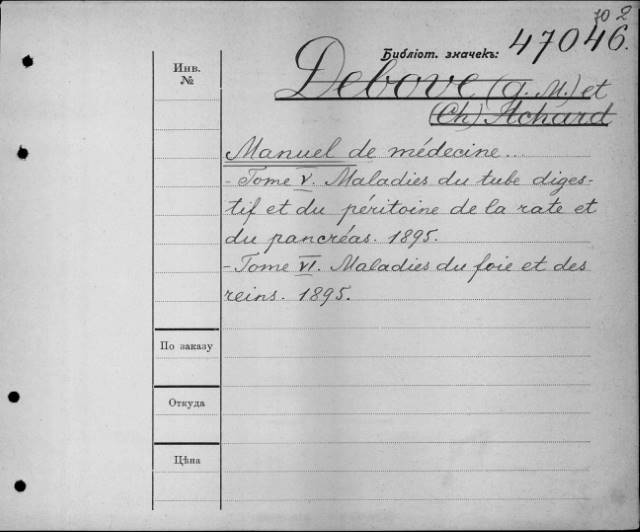 10 2
Библіот. значекъ: 47046.
Инв.
№
Debove (G. M.) et
(Ch) Achard
Manuel de médecine...
- Tome V. Maladies du tube diges-
tif et du péritoine de la rate et
du pancréas. 1895.
- Tome VI. Maladies du foie et des
reins. 1895.
По заказу
Откуда
Цѣна